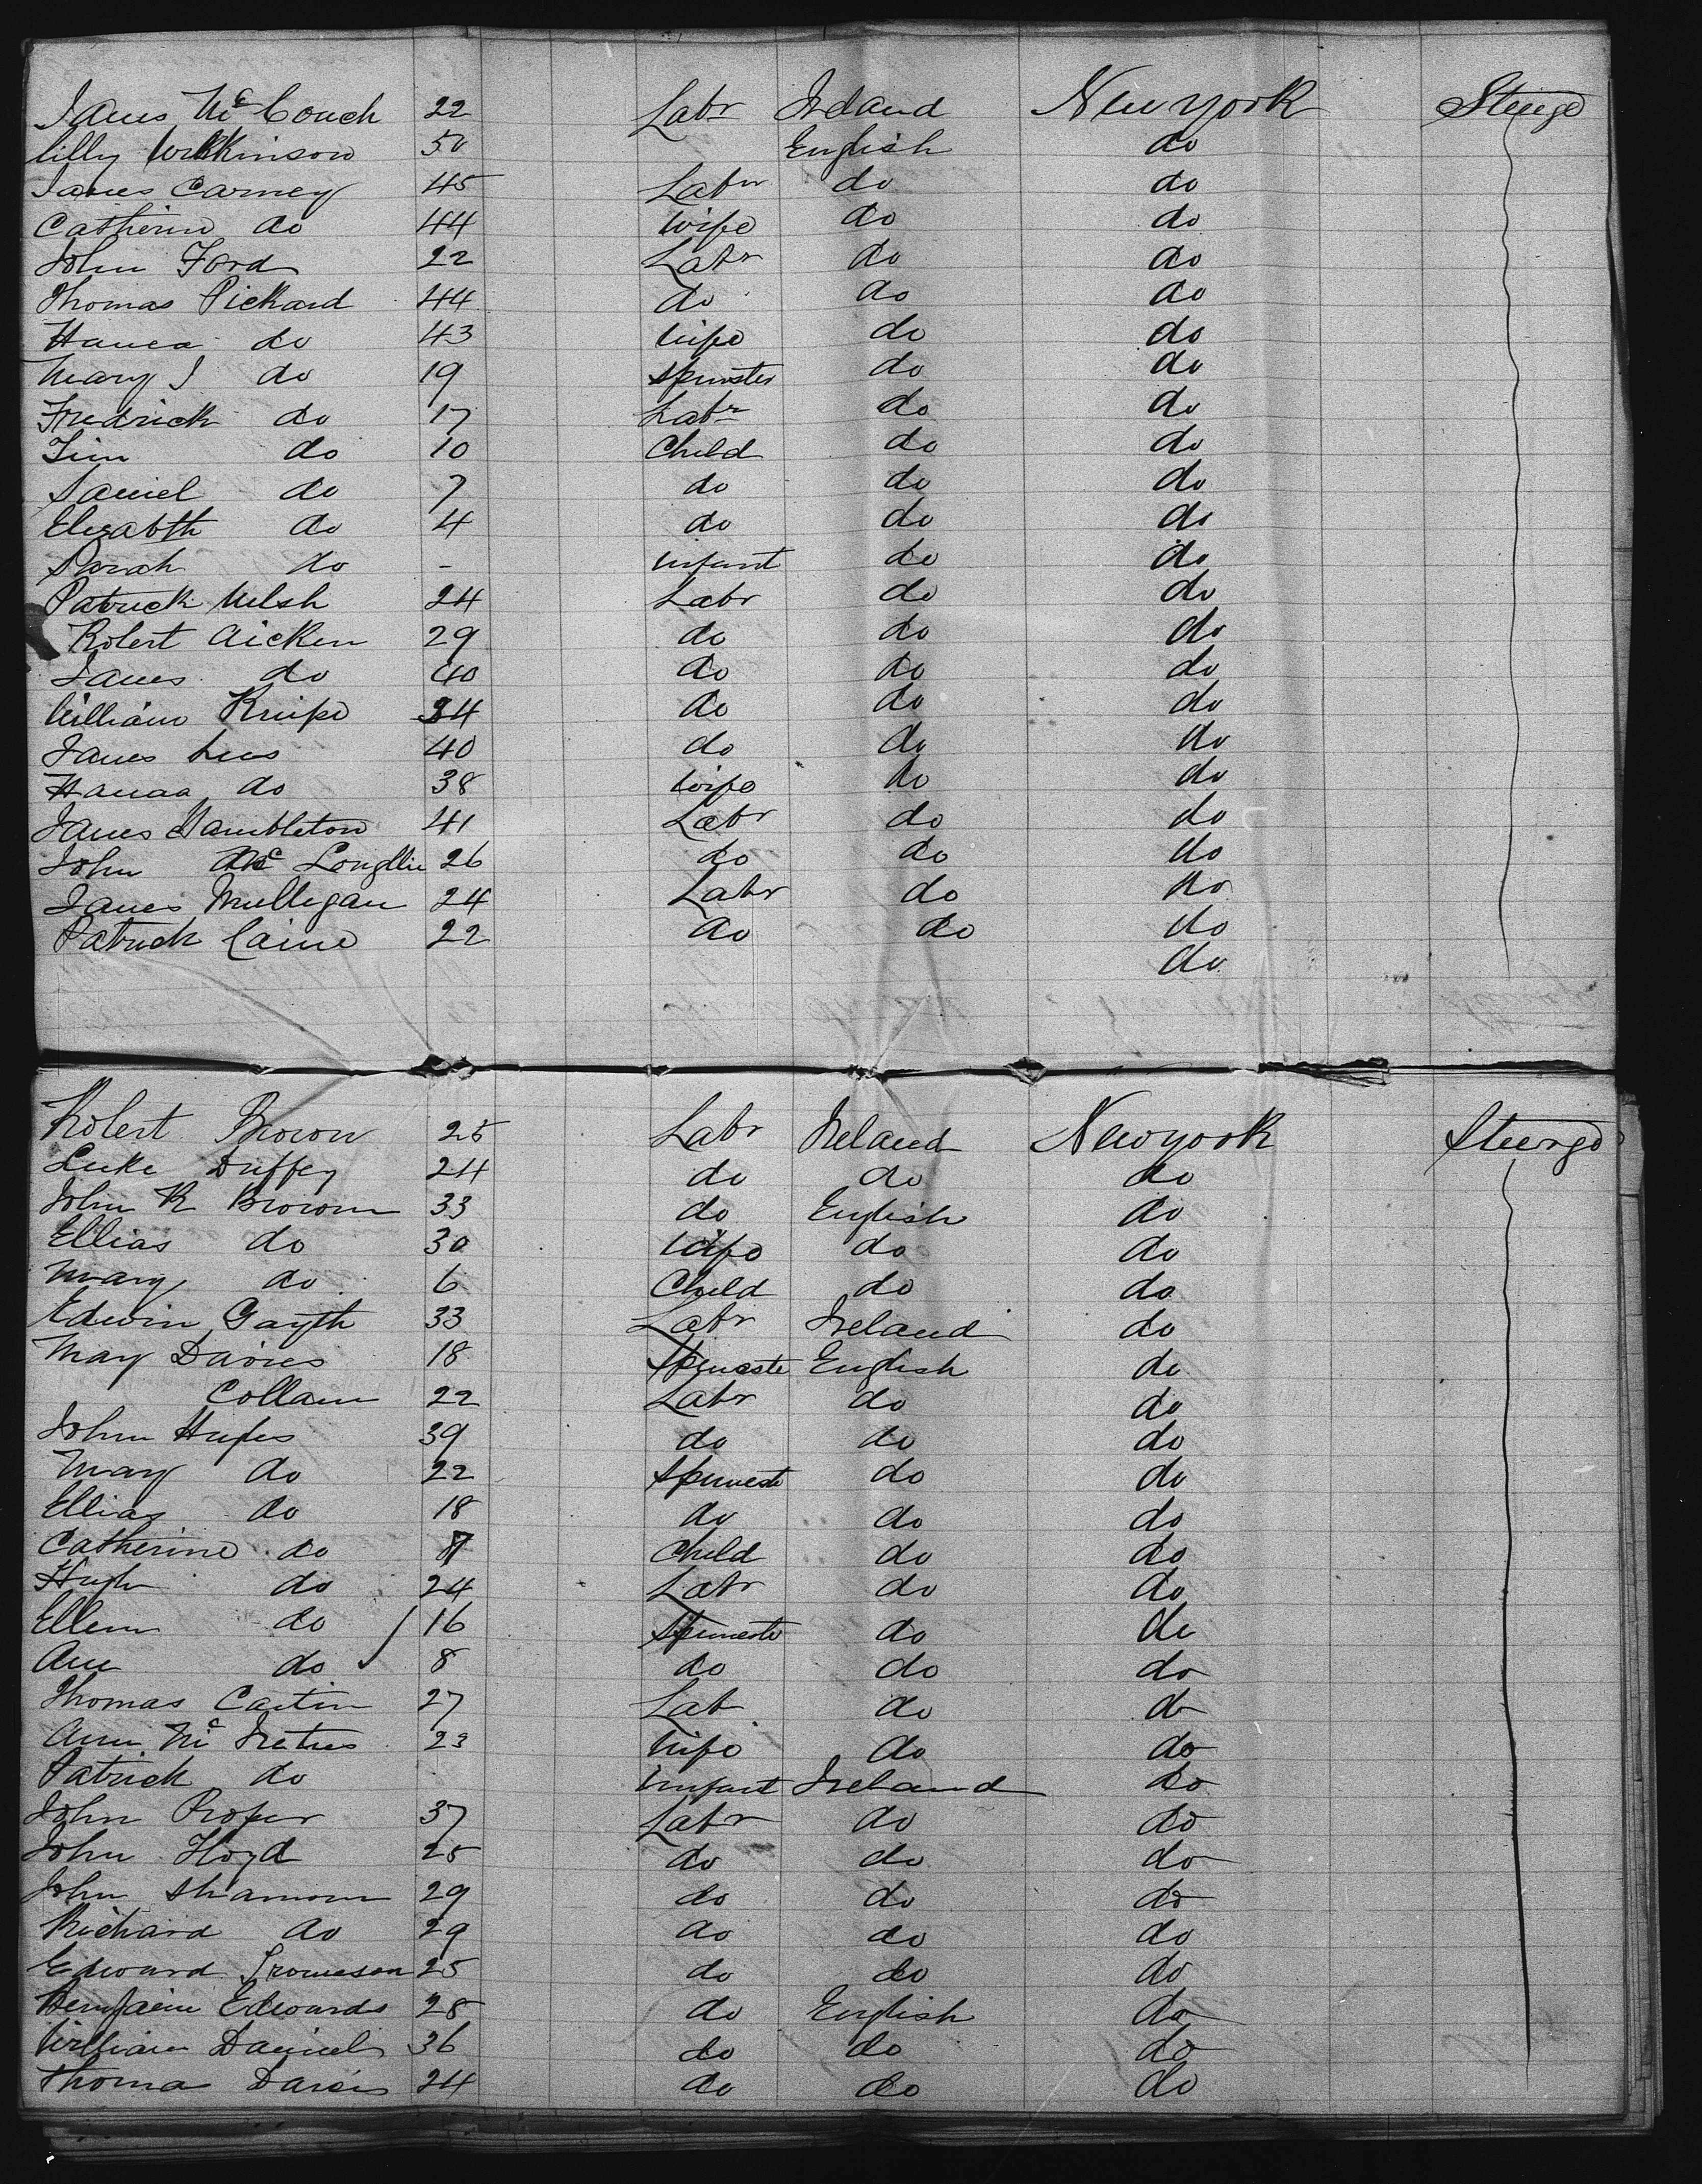 James McCouch 22 Labr Ireland New York Steerge
Lilly Wilkinson 50 English do
James Carney 45 Labr do do
Catherine do 44 wife do do
John Ford 22 Labr do do
Thomas Pickard 44 do do do
Hanea do 43 wife do do
Mary J do 19 spinster do do
Fredrick do 17 Labr do do
Jim do 10 Child do do
Samiel do 7 do do do
Elesabth do 4 do do do
Sarah do - infant do do
Patrick Welsh 24 Labr do do
Robert Aicken 29 do do do
James do 40 do do do
William Knipe 34 do do do
James Lees 40 do do do
Hanaa do 38 wife do do
James Hambleton 41 Labr do do
John Mc 26 do do do
James Mulligan 24 Labr do do
Patrick Caine 22 do do do
do
Robert Brown 25 Labr Ireland New York Steerge
Luke Duffey 24 do do do
John R Brown 33 do English do
Ellias do 30 wife do do
Mary do 6 Child do do
Edwin Gayth 33 Labr Ireland do
Mary Davies 18 Spineste English do
Collam 22 Labr do do
John Hughes 39 do do do
Mary do 22 spineste do do
Ellias do 18 do do do
Catherine do 7 Child do do
Hugh do 24 Labr do do
Ellen do 16 Spineste do do
Ann do 8 do do do
Thomas Cartin 27 Lab do do
Ann Mc 23 wife do do
Patrick do infant Ireland do
John Proper 37 Labr do do
John Floyd 25 do do do
John Shannon 29 do do do
Richard do 29 do do do
Edward 25 do do do
Benjamin Edwards 28 do English do
William Daniels 36 do do do
Thomas Davis 24 do do do